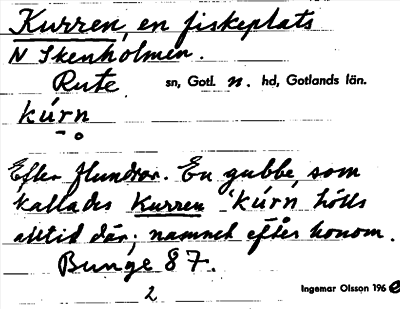 Kurren, en fiskeplats
N Skenholmen.
Rute sn, Gotl. n. hd, Gotlands län.
kúrn
Efter flundror. En gubbe, som
kallades Kurren 'kúrn hölls
alltid där; namnet efter honom.
Bunge 87.
2
Ingemar Olsson 196